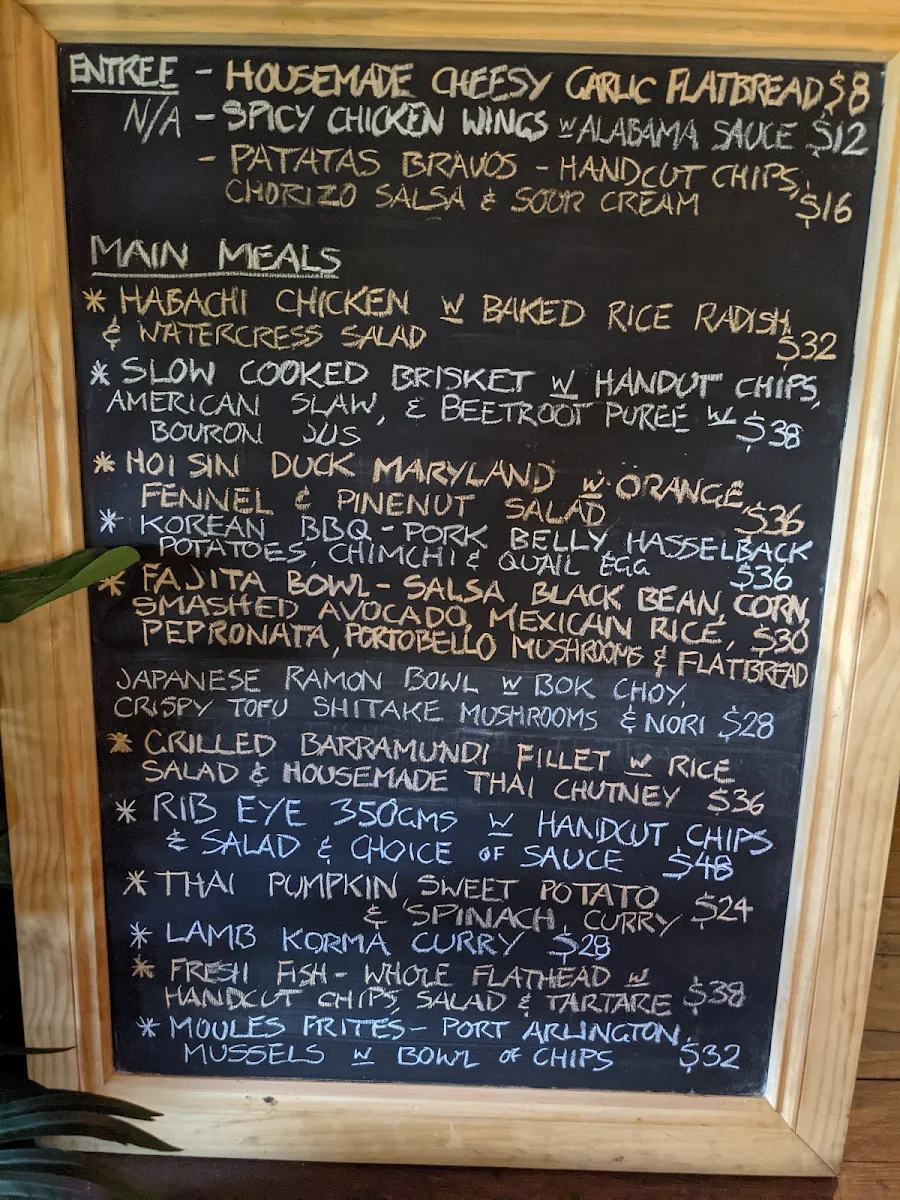 ENTREE - HOUSEMADE CHEESY GARLIC FLATBREAD $8
N/A - SPICY CHICKEN WINGS w ALABAMA SAUCE $12
- PATATAS BRAVOS - HANDCUT CHIPS,
CHORIZO SALSA & SOUR CREAM $16
MAIN MEALS
* HABACHI CHICKEN W BAKED RICE RADISH
& WATERCRESS SALAD $32
* SLOW COOKED BRISKET W HANDUT CHIPS,
AMERICAN SLAW, & BEETROOT PUREE W
BOURON JUS $38
* HOI SIN DUCK MARYLAND W ORANGE,
FENNEL & PINENUT SALAD $36
* KOREAN BBQ - PORK BELLY HASSELBACK
POTATOES, CHIMCHI & QUAIL EGG $36
* FAJITA BOWL - SALSA BLACK BEAN CORN,
SMASHED AVOCADO, MEXICAN RICE, $30
PEPRONATA, PORTOBELLO MUSHROOMS & FLATBREAD
JAPANESE RAMON BOWL W BOK CHOY,
CRISPY TOFU SHITAKE MUSHROOMS & NORI $28
* GRILLED BARRAMUNDI FILLET W RICE
SALAD & HOUSEMADE THAI CHUTNEY $36
* RIB EYE 350GMS W HANDCUT CHIPS
& SALAD & CHOICE OF SAUCE $48
* THAI PUMPKIN SWEET POTATO
& SPINACH CURRY $24
* LAMB KORMA CURRY $28
* FRESH FISH - WHOLE FLATHEAD W
HANDCUT CHIPS, SALAD & TARTARE $38
* MOULES FRITES - PORT ARLINGTON
MUSSELS W BOWL OF CHIPS $32